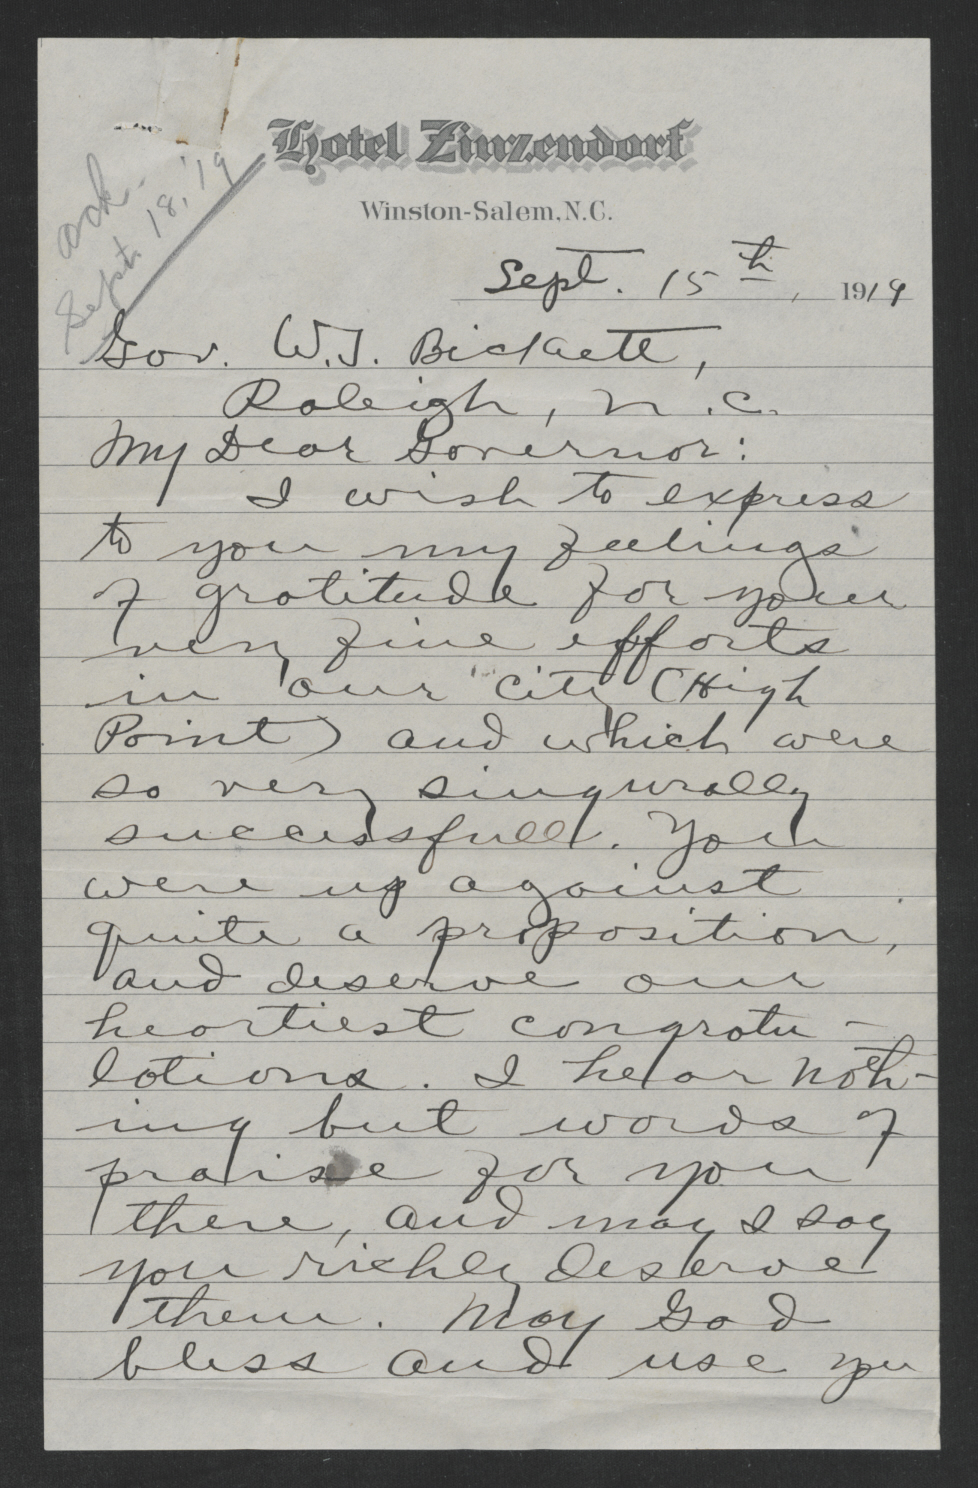 Hotel Zinzendorf
Winston-Salem, N.C.
ack.
Sept. 18, '19
Sept. 15th, 1919
Gov. W.T. Bickett,
Raleigh, N.C.
My Dear Governor:
I wish to express
to you my feelings
of gratitude for your
very fine efforts
in our city (High
Point) and which were
so very singurally
successfull. You
were up against
quite a proposition,
and deserve our
heartiest congratu-
lations. I hear noth-
ing but words of
praise for you
there, and may I say
you richly deserve
them. May God
bless and use you